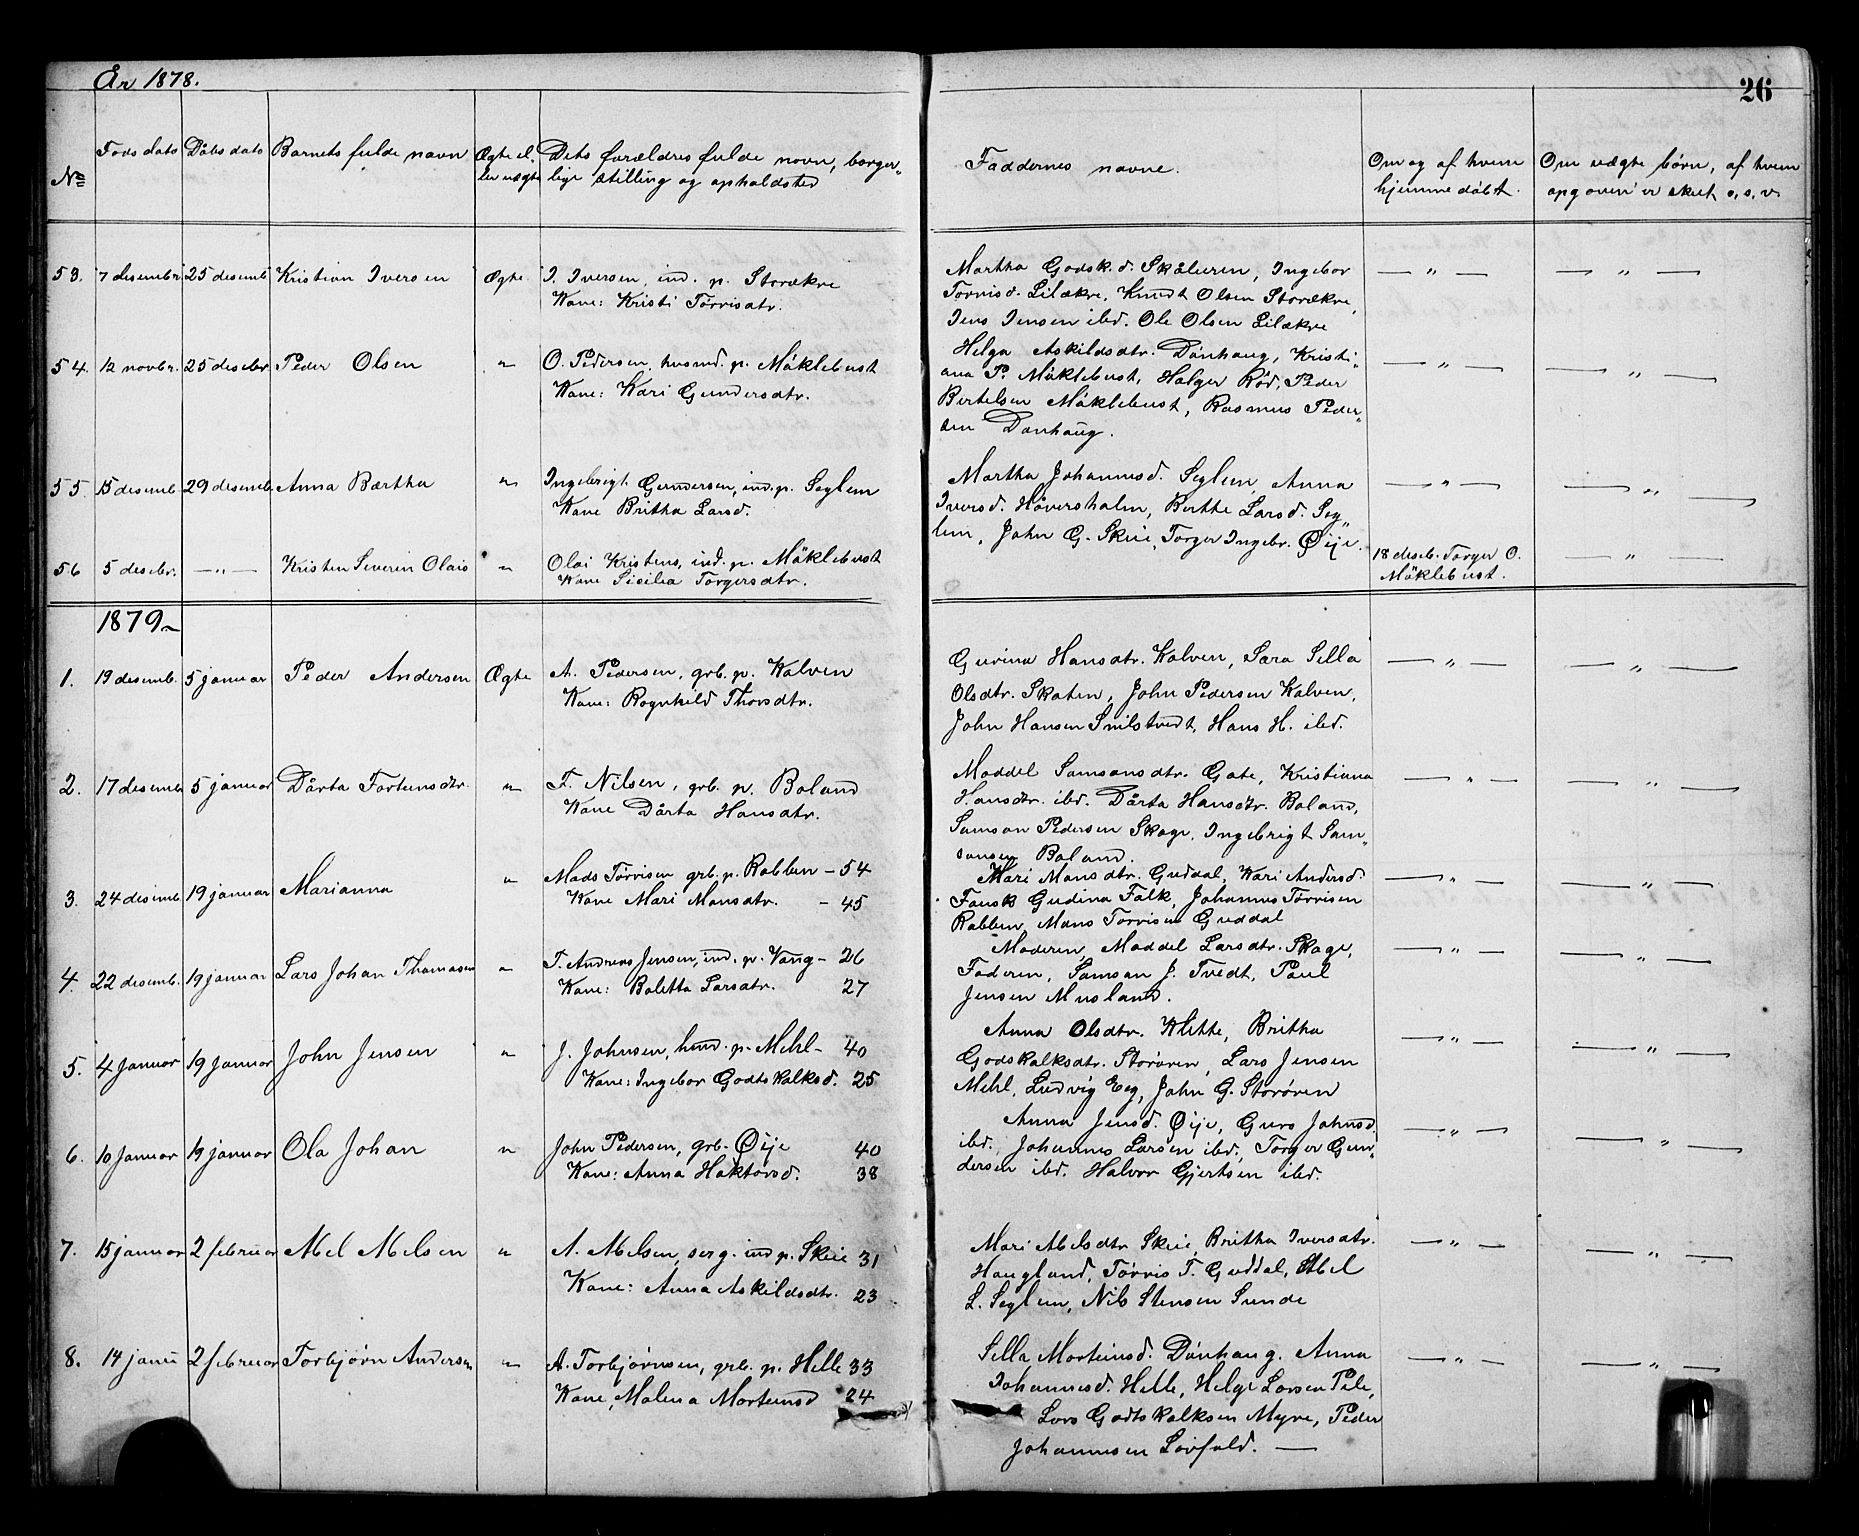 År 1878.
26
№
Føds dato
Dåbs dato
Barnets fulde navn
Ægte el.
ler uægte
Dets forældres fulde navn, borger„
lige stilling og opholdsted
Faddernes navne.
Om og af hvem
hjemmedøbt.
Om uægte børn, af hvem
opgaven er skret o, s, v.
53. 7 desembr. 25 desemb. Kristian Iversen Ægte I. Iversen, ind. p. Storækre
Kone: Kristi Tørrisdtr.
Martha Godsk.d. Skåluren, Ingebor
Tørrisd. Lilækre, Knudt Olsen Storækre,
Jens Jensen ibd. Ole Olsen Lilækre
— „ — — „ —
54. 12 novbr. 25 desebr. Peder Olsen „ O. Pedersen, husmd. p. Möklebust
Kone: Kari Gundersdtr.
Helga Askildsdtr. Dönhaug, Kristi„
ana P. Möklebust, Holger Röd, Peder
Bertelsen Möklebust, Rasmus Peder„
sen Donhaug.
— „ — — „ —
55. 15 desemb. 29 desemb. Anna Bærtha „ Ingebrigt Gundersen, ind. p. Seglem
Kone Britha Larsd.
Martha Johannesd. Seglem, Anna
Iversd. Höversholm, Berthe Larsd. Seg„
lem, John G. Skeie, Torger Ingebr. Øije.
— „ — — „ —
56 5 desebr. — „ — Kristen Severin Olais „ Olai Kristens, ind. p. Möklebust
Kone Sicilia Torgersdtr.
18 deseb. Torger O.
Möklebust.
— „ —
1879
1. 19 desemb. 5 januar Peder Andersen Ægte A. Pedersen, grb. p. Kalven
Kone: Ragnhild Thorsdtr.
Gurina Hansdtr. Kalven, Sara Sella
Olsdtr. Skaten, John Pedersen Kalven,
John Hansen Snilstvedt, Hans H. ibd.
— „ — — „ —
2. 17 desemb. 5 januar Dårta Fortunsdtr. „ F. Nilsen, grb. p. Boland
Kone Dårta Hansdtr.
Maddel Samsonsdtr. Gate, Kristiana
Hansdtr. ibd. Dårta Hansdtr. Boland,
Samson Pedersen Skoge, Ingebrigt Sam„
sonsen Boland.
— „ — — „ —
3. 24 desemb. 19 januar Marianna „ Mads Törrisen grb. p. Rabben – 54
Kone Mari Monsdtr. – 45
Mari Monsdtr. Guddal, Kari Andersd.
Fausk Gudina Falk, Johannes Törrisen
Rabben, Mons Torrisen Guddal
— „ — — „ —
4. 22 desemb. 19 januar Lars Johan Thomasen „ T. Andreas Jensen, ind. p. Vang – 26
Kone: Boletta Larsdtr. 27
Moderen, Maddel Larsdtr. Skoge,
Faderen, Samson J. Tvedt, Paul
Jensen Musland.
— „ — — „ —
5. 4 januar 19 januar John Jensen „ J. Johnsen, hmd. p. Mehl – 40
Kone: Ingebor Godtskalksd. 25
Anna Olsdtr. Klette, Britha
Godskalksdtr. Storören, Lars Jensen
Mehl, Ludvig Eeg, John G. Storören
— „ — — „ —
6. 10 januar 19 januar Ola Johan „ John Pedersen, grb. Øije 40
Kone: Anna Haktorsd. 38
Anna Jensd. Øije, Guro Johnsd.
ibd. Johannes Larsen ibd., Torger Gun„
dersen ibd. Halvor Gjertsen ibd.
— „ — — „ —
7. 15 januar 2 februar Abel Abelsen „ A. Abelsen, serg. ind p. Skeie 31
Kone: Anna Askildsdtr. 23
Mari Abelsdtr Skeie, Britha Iversdtr.
Haugland, Törris T. Guddal, Abel
L. Seglem, Nils Stensen Sunde
— „ — — „ —
8. 14 janu 2 februar Torbjörn Andersen „ A. Torbjørnsen, grb. p. Helle 33
Kone, Malena Morteinsd 24
Sella Morteinsd. Dönhaug. Anna
Johannesd. Helle, Helge Larsen Pile,
Lars Godtskalksen Myre, Peder
Johannesen Lövfald. —
— „ — — „ —